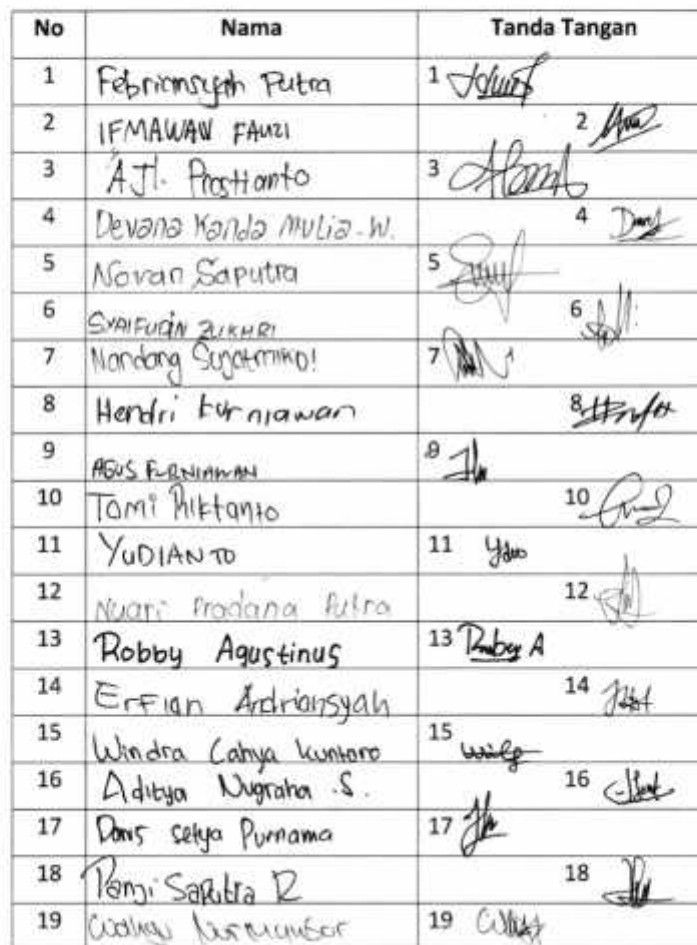 No Nama Tanda Tangan
1 Febriansyah Putra 1
2 IFMAWAN FAUZI 2
3 AJI. Prasttanto 3
4 Devana Kanda Mulia.W. 4
5 Novan Saputra 5
6 SYAIFUDIN ZUKHRI 6
7 Nandang Sujatmiko! 7
8 Hendri Kurniawan 8
9 AGUS KURNIAWAN 9
10 Tomi Riktanto 10
11 YUDIANTO 11 Yduo
12 Nuari Pradana Putra 12
13 Robby Agustinus 13 Robby A
14 Erfian Ardriansyah 14
15 Windra Cahya Kuntoro 15
16 Aditya Nugraha .S. 16
17 Doni setya Purnama 17
18 Panji Saputra R 18
19 Wahyu 19